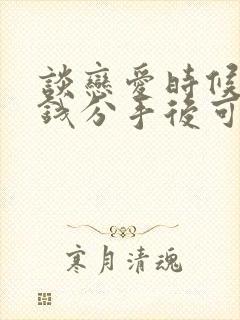 談戀愛時候
錢分手後可
寒月清魂